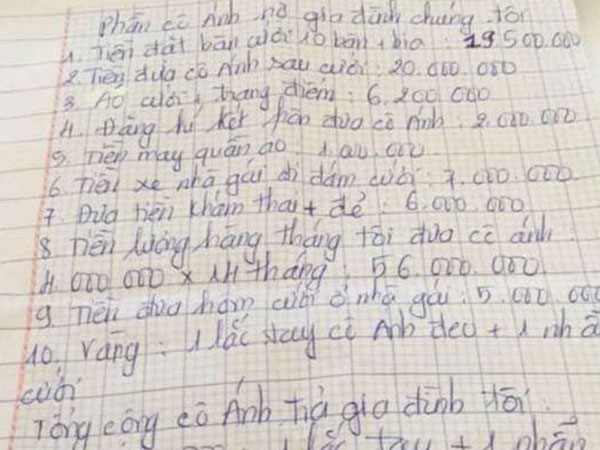 Phần cô Ánh nợ gia đình chúng tôi
1. Tiền đặt bàn cưới 10 bàn + bia : 19 500.000
2. Tiền đưa cô Ánh sau cưới : 20.000.000
3 Áo cưới + trang điểm : 6.200 000
4. Đăng kí kết hôn đưa cô Ánh : 2.000.000
5. Tiền may quần áo : 1.000.000
6. Tiền xe nhà gái đi đám cưới : 7.000.000
7. Đưa tiền khám thai + đẻ : 6.000.000
8 Tiền lương hàng tháng tôi đưa cô ánh :
4.000 000 x 14 tháng : 56.000.000
9. Tiền đưa hôm cưới ở nhà gái : 5.000.000
10. Vàng : 1 lắc tay cô Ánh đeo + 1 nhẫ
cưới
Tổng cộng cô Ánh trả gia đình tôi :
lắc tay + 1 nhẫn